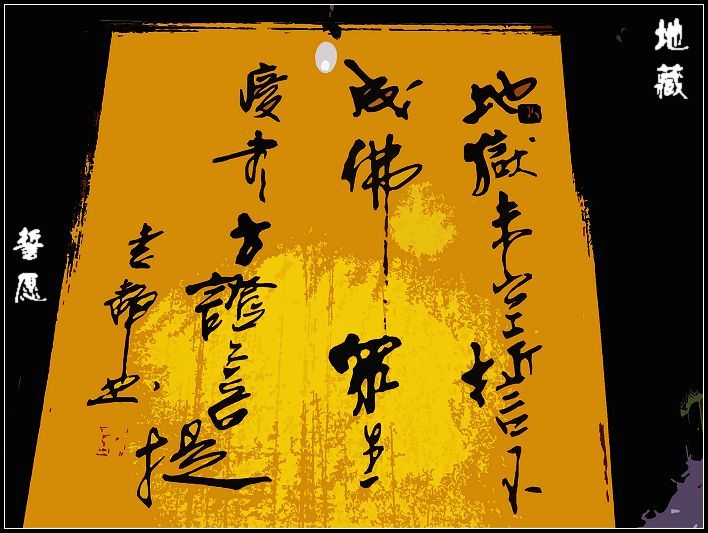 地藏
地獄未空誓不
成佛眾生
度尽方證菩提
誓愿